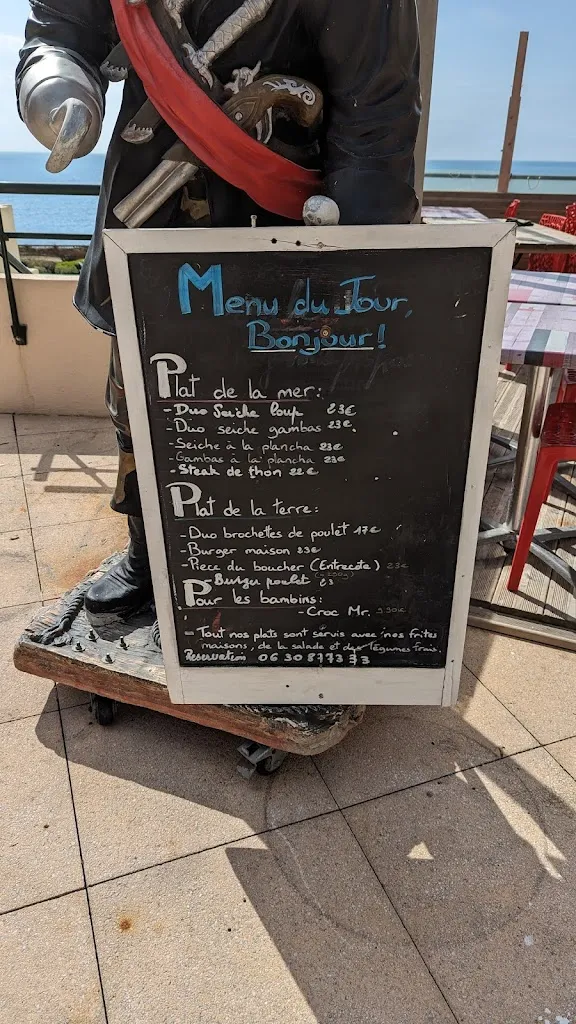 Menu du Jour,
Bonjour!
Plat de la mer:
- Duo Seiche loup 23€
- Duo seiche gambas 23€.
- Seiche à la plancha 23€
- Gambas à la plancha 23€
- Steak de thon 22€
Plat de la terre:
- Duo brochettes de poulet 17€
- Burger maison 23€
- Piece du boucher (Entrecote) 23€
- Burger poulet
Pour les bambins:
- Croc Mr. 9.90€
- Tout nos plats sont servis avec nos frites
maisons, de la salade et des légumes frais.
Reservation 06 30 877373